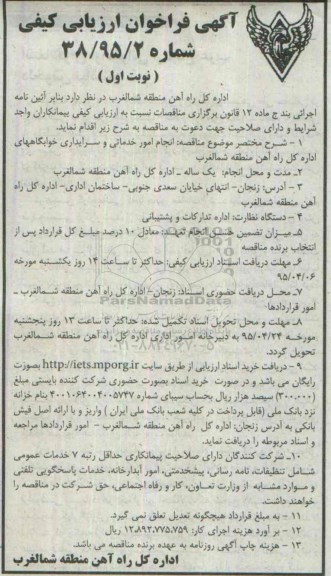 آگهی فراخوان ارزیابی کیفی
شماره ۳۸/۹۵/۲
( نوبت اول )
اداره کل راه آهن منطقه شمالغرب در نظر دارد بنابر آئین نامه
اجرائی بند ج ماده ۱۲ قانون برگزاری مناقصات نسبت به ارزیابی کیفی پیمانکاران واجد
شرایط و دارای صلاحیت جهت دعوت به مناقصه به شرح زیر اقدام نماید.
۱ - شرح مختصر موضوع مناقصه: انجام امور خدماتی و سرایداری خوابگاههای
اداره کل راه آهن منطقه شمالغرب
۲- مدت و محل انجام: یک ساله ـ اداره کل راه آهن منطقه شمالغرب
۳ - آدرس: زنجان- انتهای خیابان سعدی جنوبی- ساختمان اداری- اداره کل راه
آهن منطقه شمالغرب
۴ - دستگاه نظارت: اداره تدارکات و پشتیبانی
۵ـ میزان تضمین حسن انجام تعهدات: معادل ۱۰ درصد مبلغ کل قرارداد پس از
انتخاب برنده مناقصه
۶ـ مهلت دریافت اسناد ارزیابی کیفی: حداکثر تا ساعت ۱۴ روز یکشنبه مورخه
۹۵/۰۴/۰۶
۷ـ محل دریافت حضوری اسناد: زنجان- اداره کل راه آهن منطقه شمالغرب ـ
امور قراردادها
۸ـ مهلت و محل تحویل اسناد تکمیل شده: حداکثر تا ساعت ۱۳ روز پنجشنبه
مورخه ۹۵/۰۴/۲۴ به دبیرخانه امور اداری اداره کل راه آهن منطقه شمالغرب
تحویل گردد.
۹ - دریافت خرید اسناد ارزیابی از طریق سایت http://iets.mporg.ir بصورت
رایگان می باشد و در صورت خرید اسناد بصورت حضوری شرکت کننده بایستی مبلغ
(۳۰۰،۰۰۰) سیصد هزار ریال بحساب سیبای شماره ۴۰۰۱۰۶۴۰۰۴۰۰۵۷۴۷ بنام خزانه
نزد بانک ملی (قابل پرداخت در کلیه شعب بانک ملی ایران ) واریز و با ارائه اصل فیش
بانکی به آدرس زنجان: اداره کل راه آهن منطقه شمالغرب - امور قراردادها مراجعه
و اسناد مربوطه را دریافت نماید.
۱۰ـ شرکت کنندگان دارای صلاحیت پیمانکاری حداقل رتبه ۷ خدمات عمومی
شامل تنظیفات، نامه رسانی، پیشخدمتی، امور آبدارخانه، خدمات پاسخگویی تلفنی
و موارد مشابه از وزارت تعاون، کار و رفاه اجتماعی، حق شرکت در مناقصه را
خواهند داشت.
۱۱ - به مبلغ قرارداد هیچگونه تعدیل تعلق نمی گیرد.
۱۲ - برآورد هزینه اجرای کار: ۱۲،۸۹۳،۷۷۵،۷۵۹ ریال
۱۳ - هزینه چاپ آگهی روزنامه به عهده برنده مناقصه می باشد.
اداره کل راه آهن منطقه شمالغرب